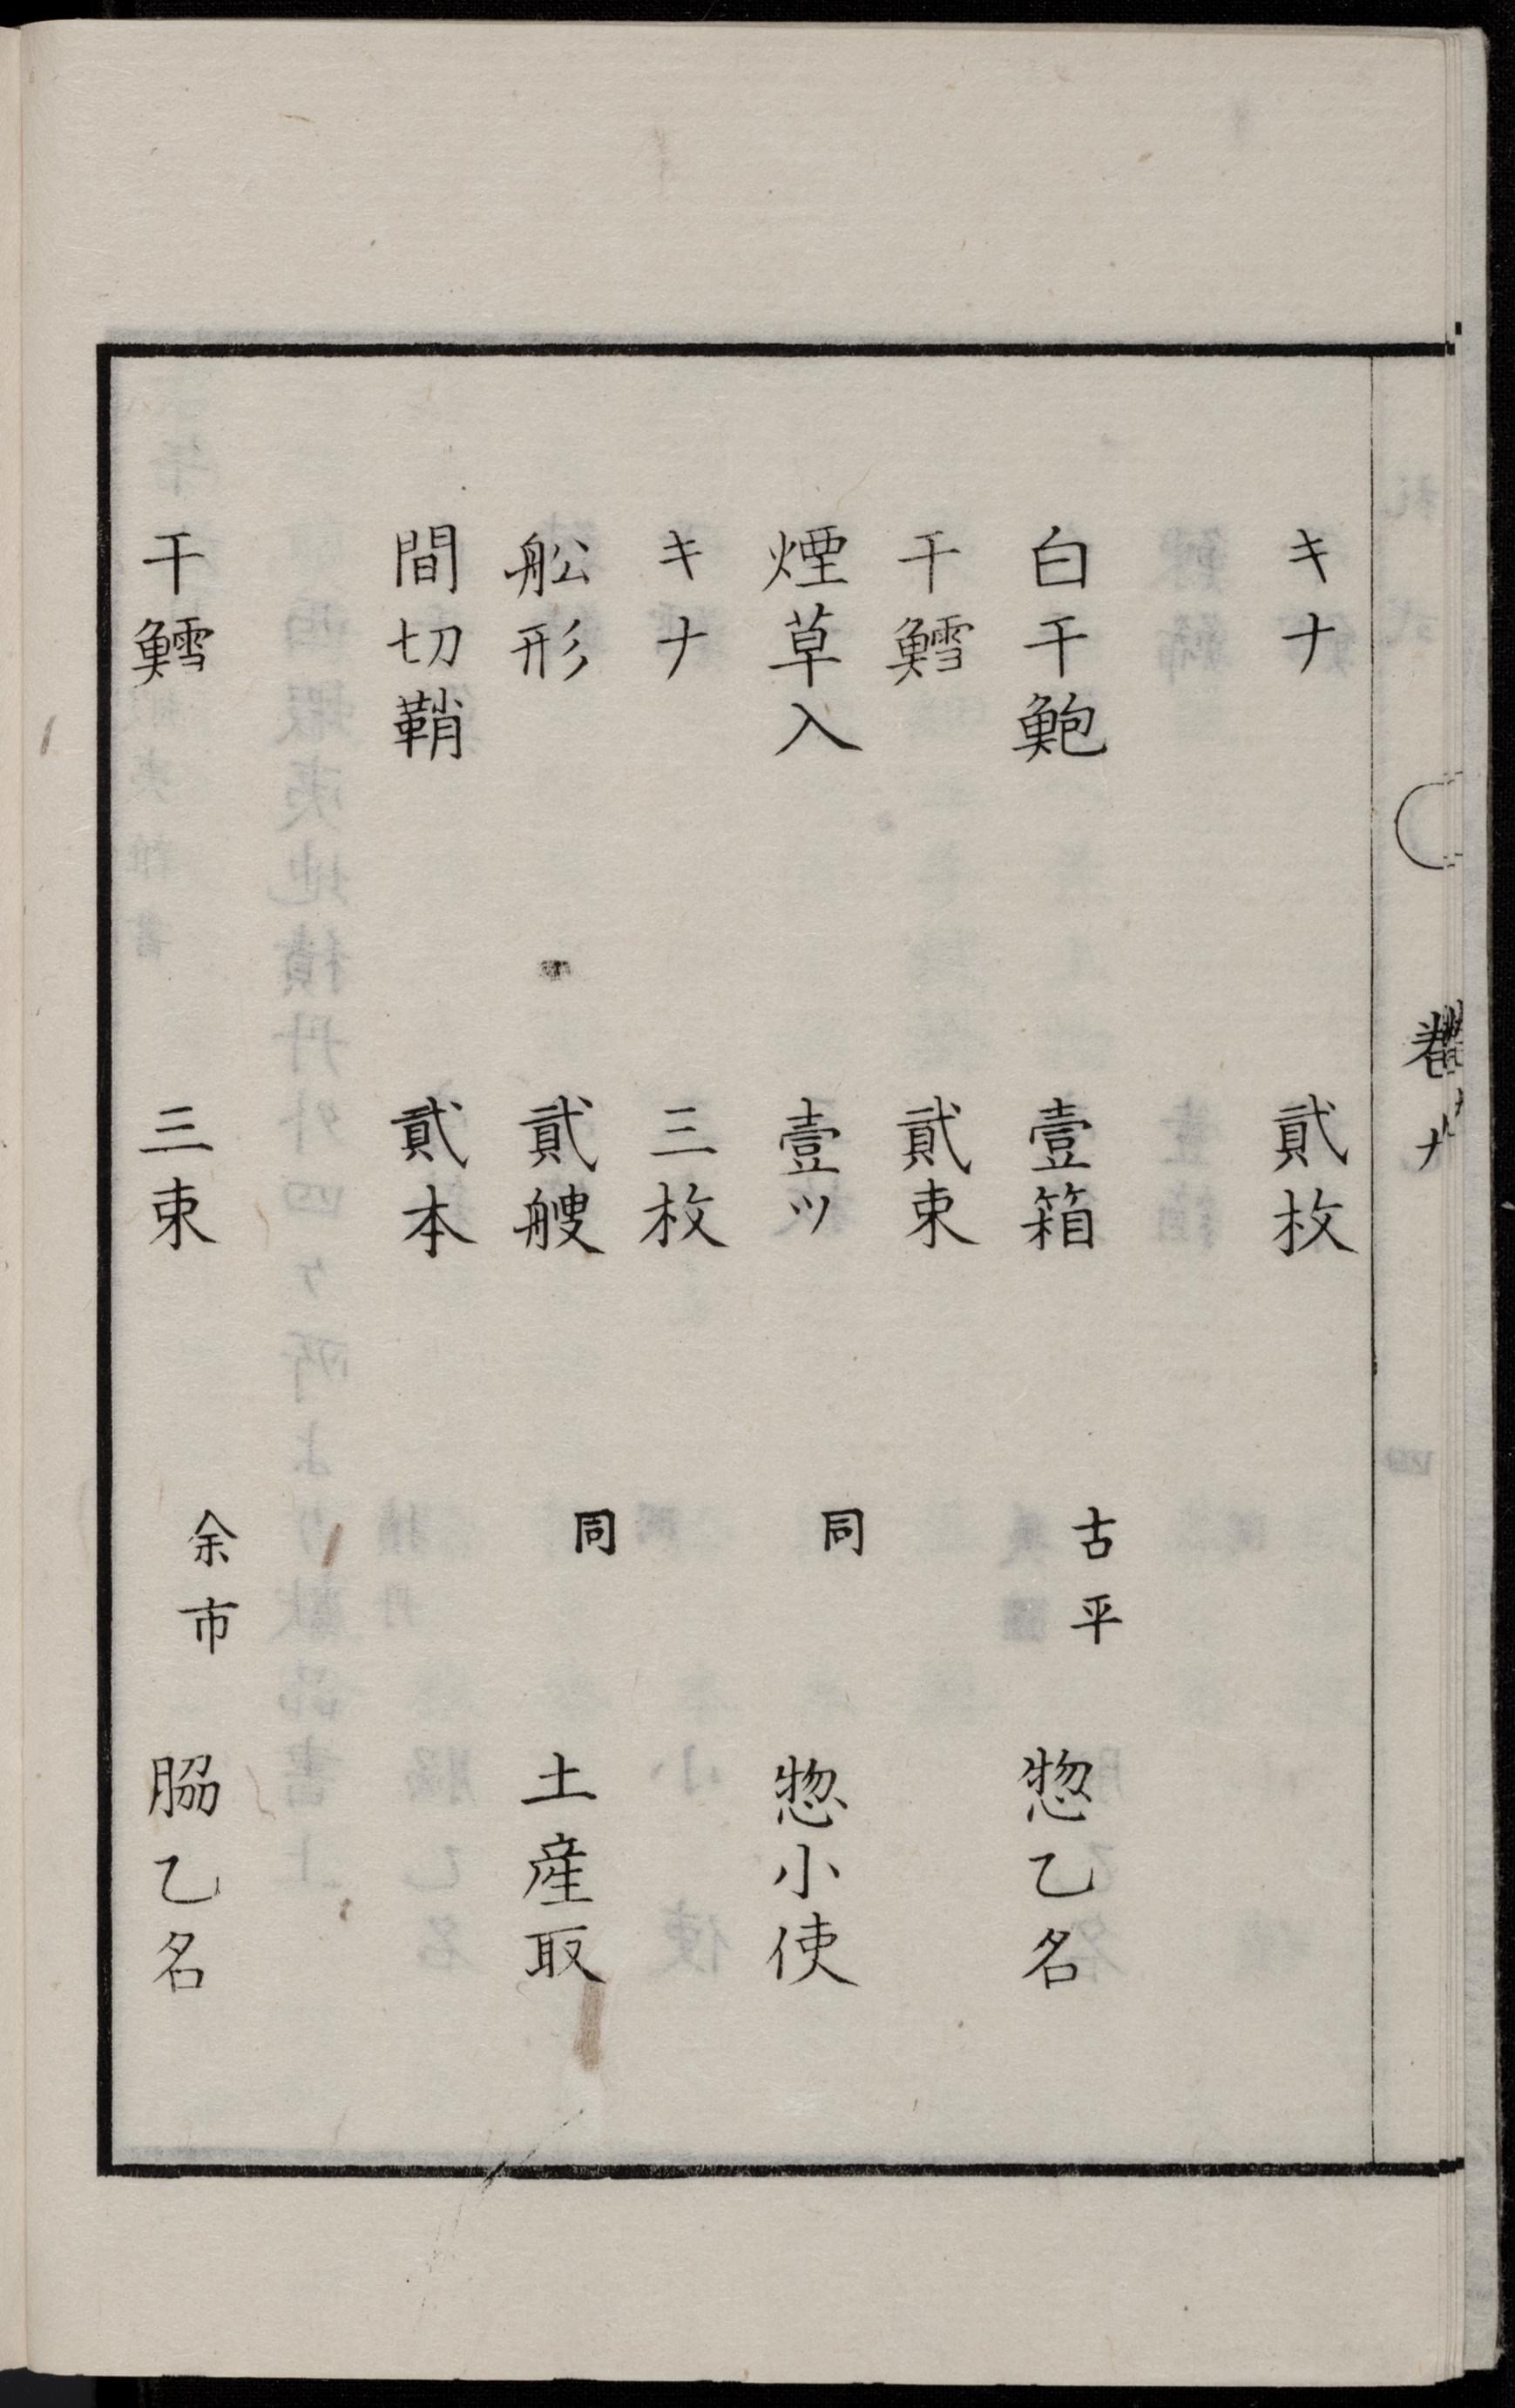 キナ 貳枚
白干鮑 壹箱 古平 惣乙名
干鱈 貳束
煙草入 壹ッ 同 惣小使
キナ 三枚
舩形 貳艘 同 土産取
間切鞘 貳本
干鱈 三束 余市 脇乙名